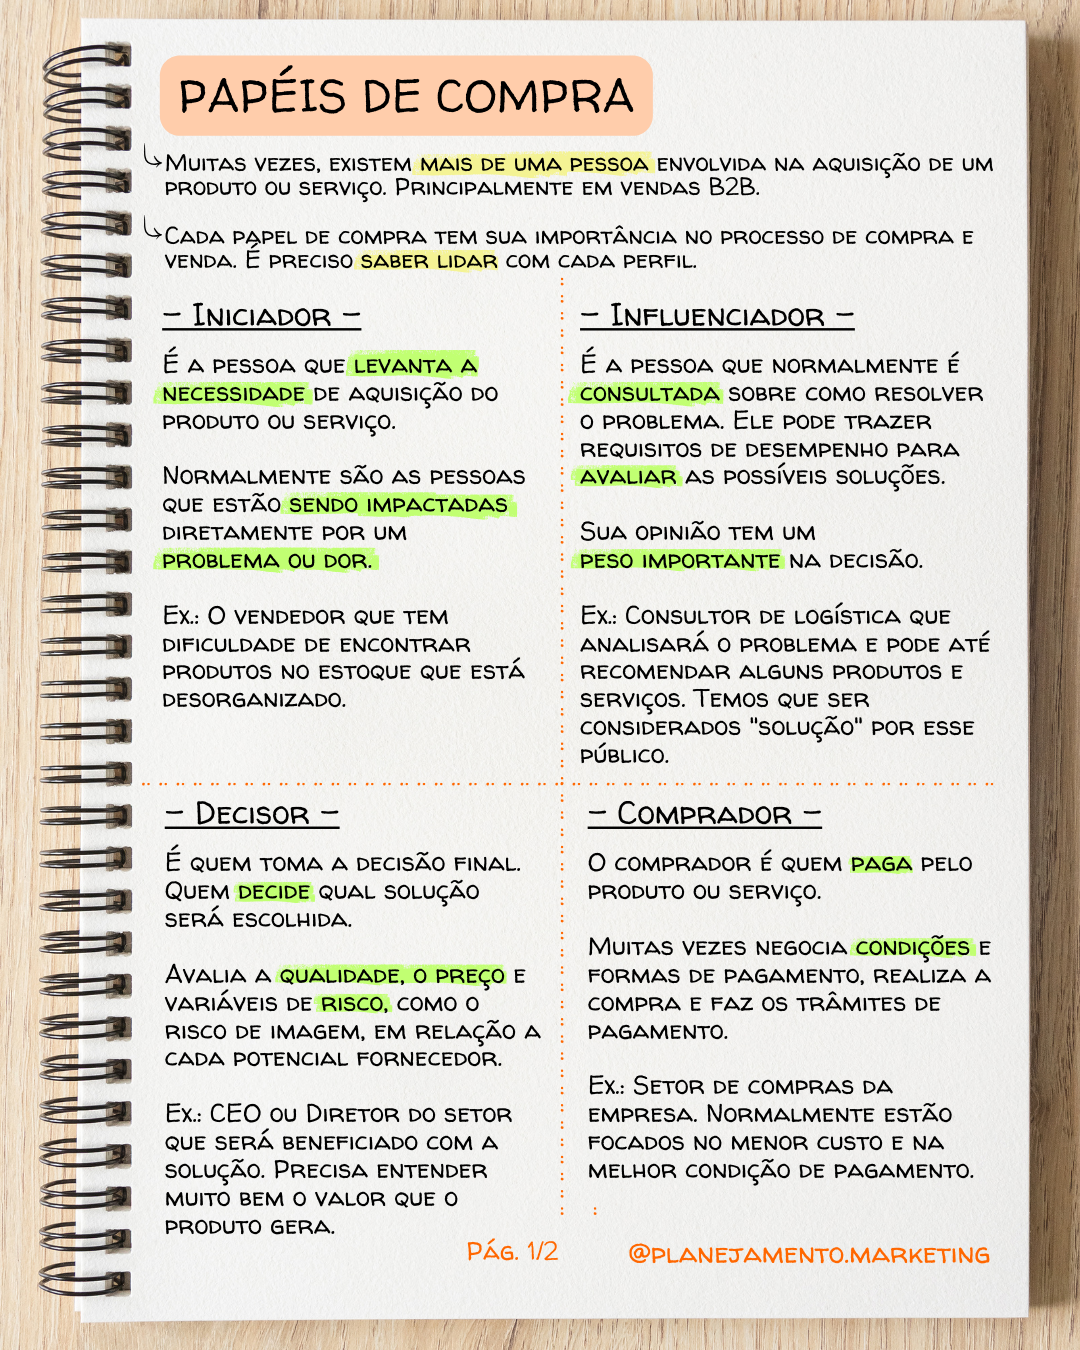 PAPÉIS DE COMPRA
Muitas vezes, existem mais de uma pessoa envolvida na aquisição de um
produto ou serviço. Principalmente em vendas B2B.
Cada papel de compra tem sua importância no processo de compra e
venda. É preciso saber lidar com cada perfil.
- Iniciador -
É a pessoa que levanta a
necessidade de aquisição do
produto ou serviço.
Normalmente são as pessoas
que estão sendo impactadas
diretamente por um
problema ou dor.
Ex.: O vendedor que tem
dificuldade de encontrar
produtos no estoque que está
desorganizado.
- Influenciador -
É a pessoa que normalmente é
consultada sobre como resolver
o problema. Ele pode trazer
requisitos de desempenho para
avaliar as possíveis soluções.
Sua opinião tem um
peso importante na decisão.
Ex.: Consultor de logística que
analisará o problema e pode até
recomendar alguns produtos e
serviços. Temos que ser
considerados "solução" por esse
público.
- Decisor -
É quem toma a decisão final.
Quem decide qual solução
será escolhida.
Avalia a qualidade, o preço e
variáveis de risco, como o
risco de imagem, em relação a
cada potencial fornecedor.
Ex.: CEO ou Diretor do setor
que será beneficiado com a
solução. Precisa entender
muito bem o valor que o
produto gera.
- Comprador -
O comprador é quem paga pelo
produto ou serviço.
Muitas vezes negocia condições e
formas de pagamento, realiza a
compra e faz os trâmites de
pagamento.
Ex.: Setor de compras da
empresa. Normalmente estão
focados no menor custo e na
melhor condição de pagamento.
Pág. 1/2
@planejamento.marketing